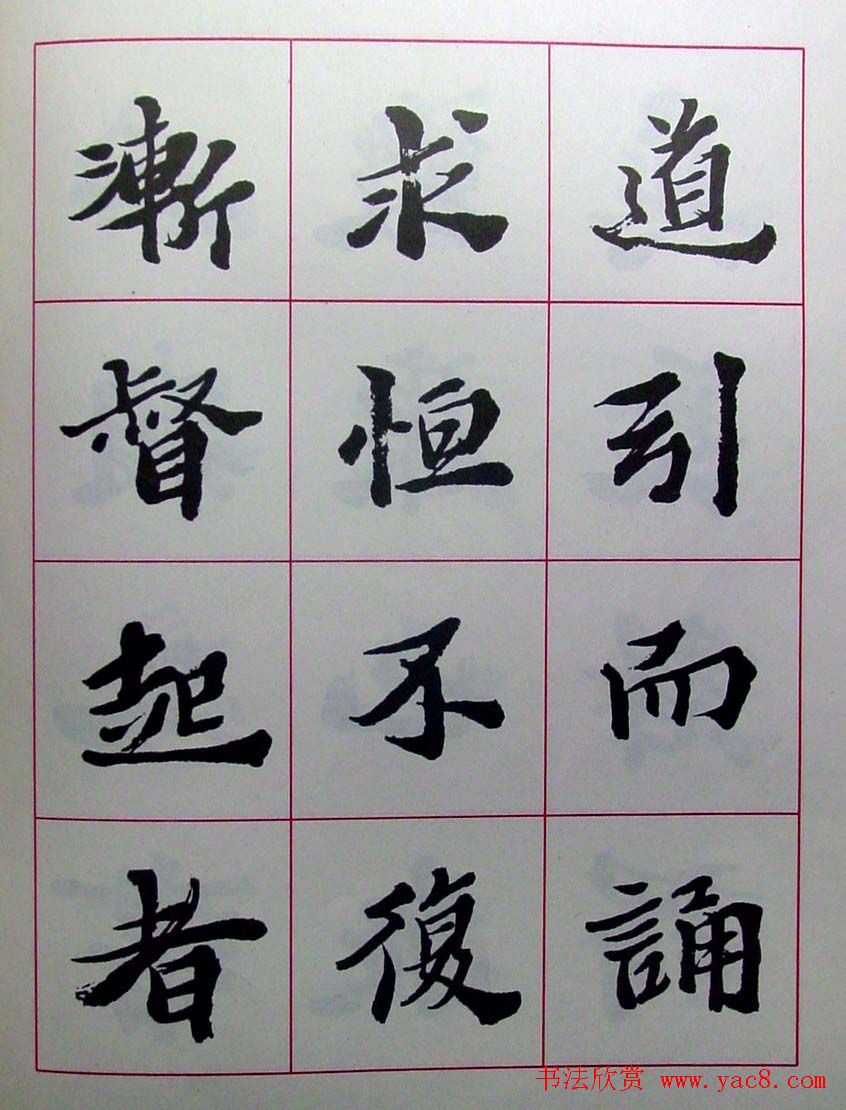 道引而誦
求恒不復
漸督起者
书法欣赏 www.yac8.com